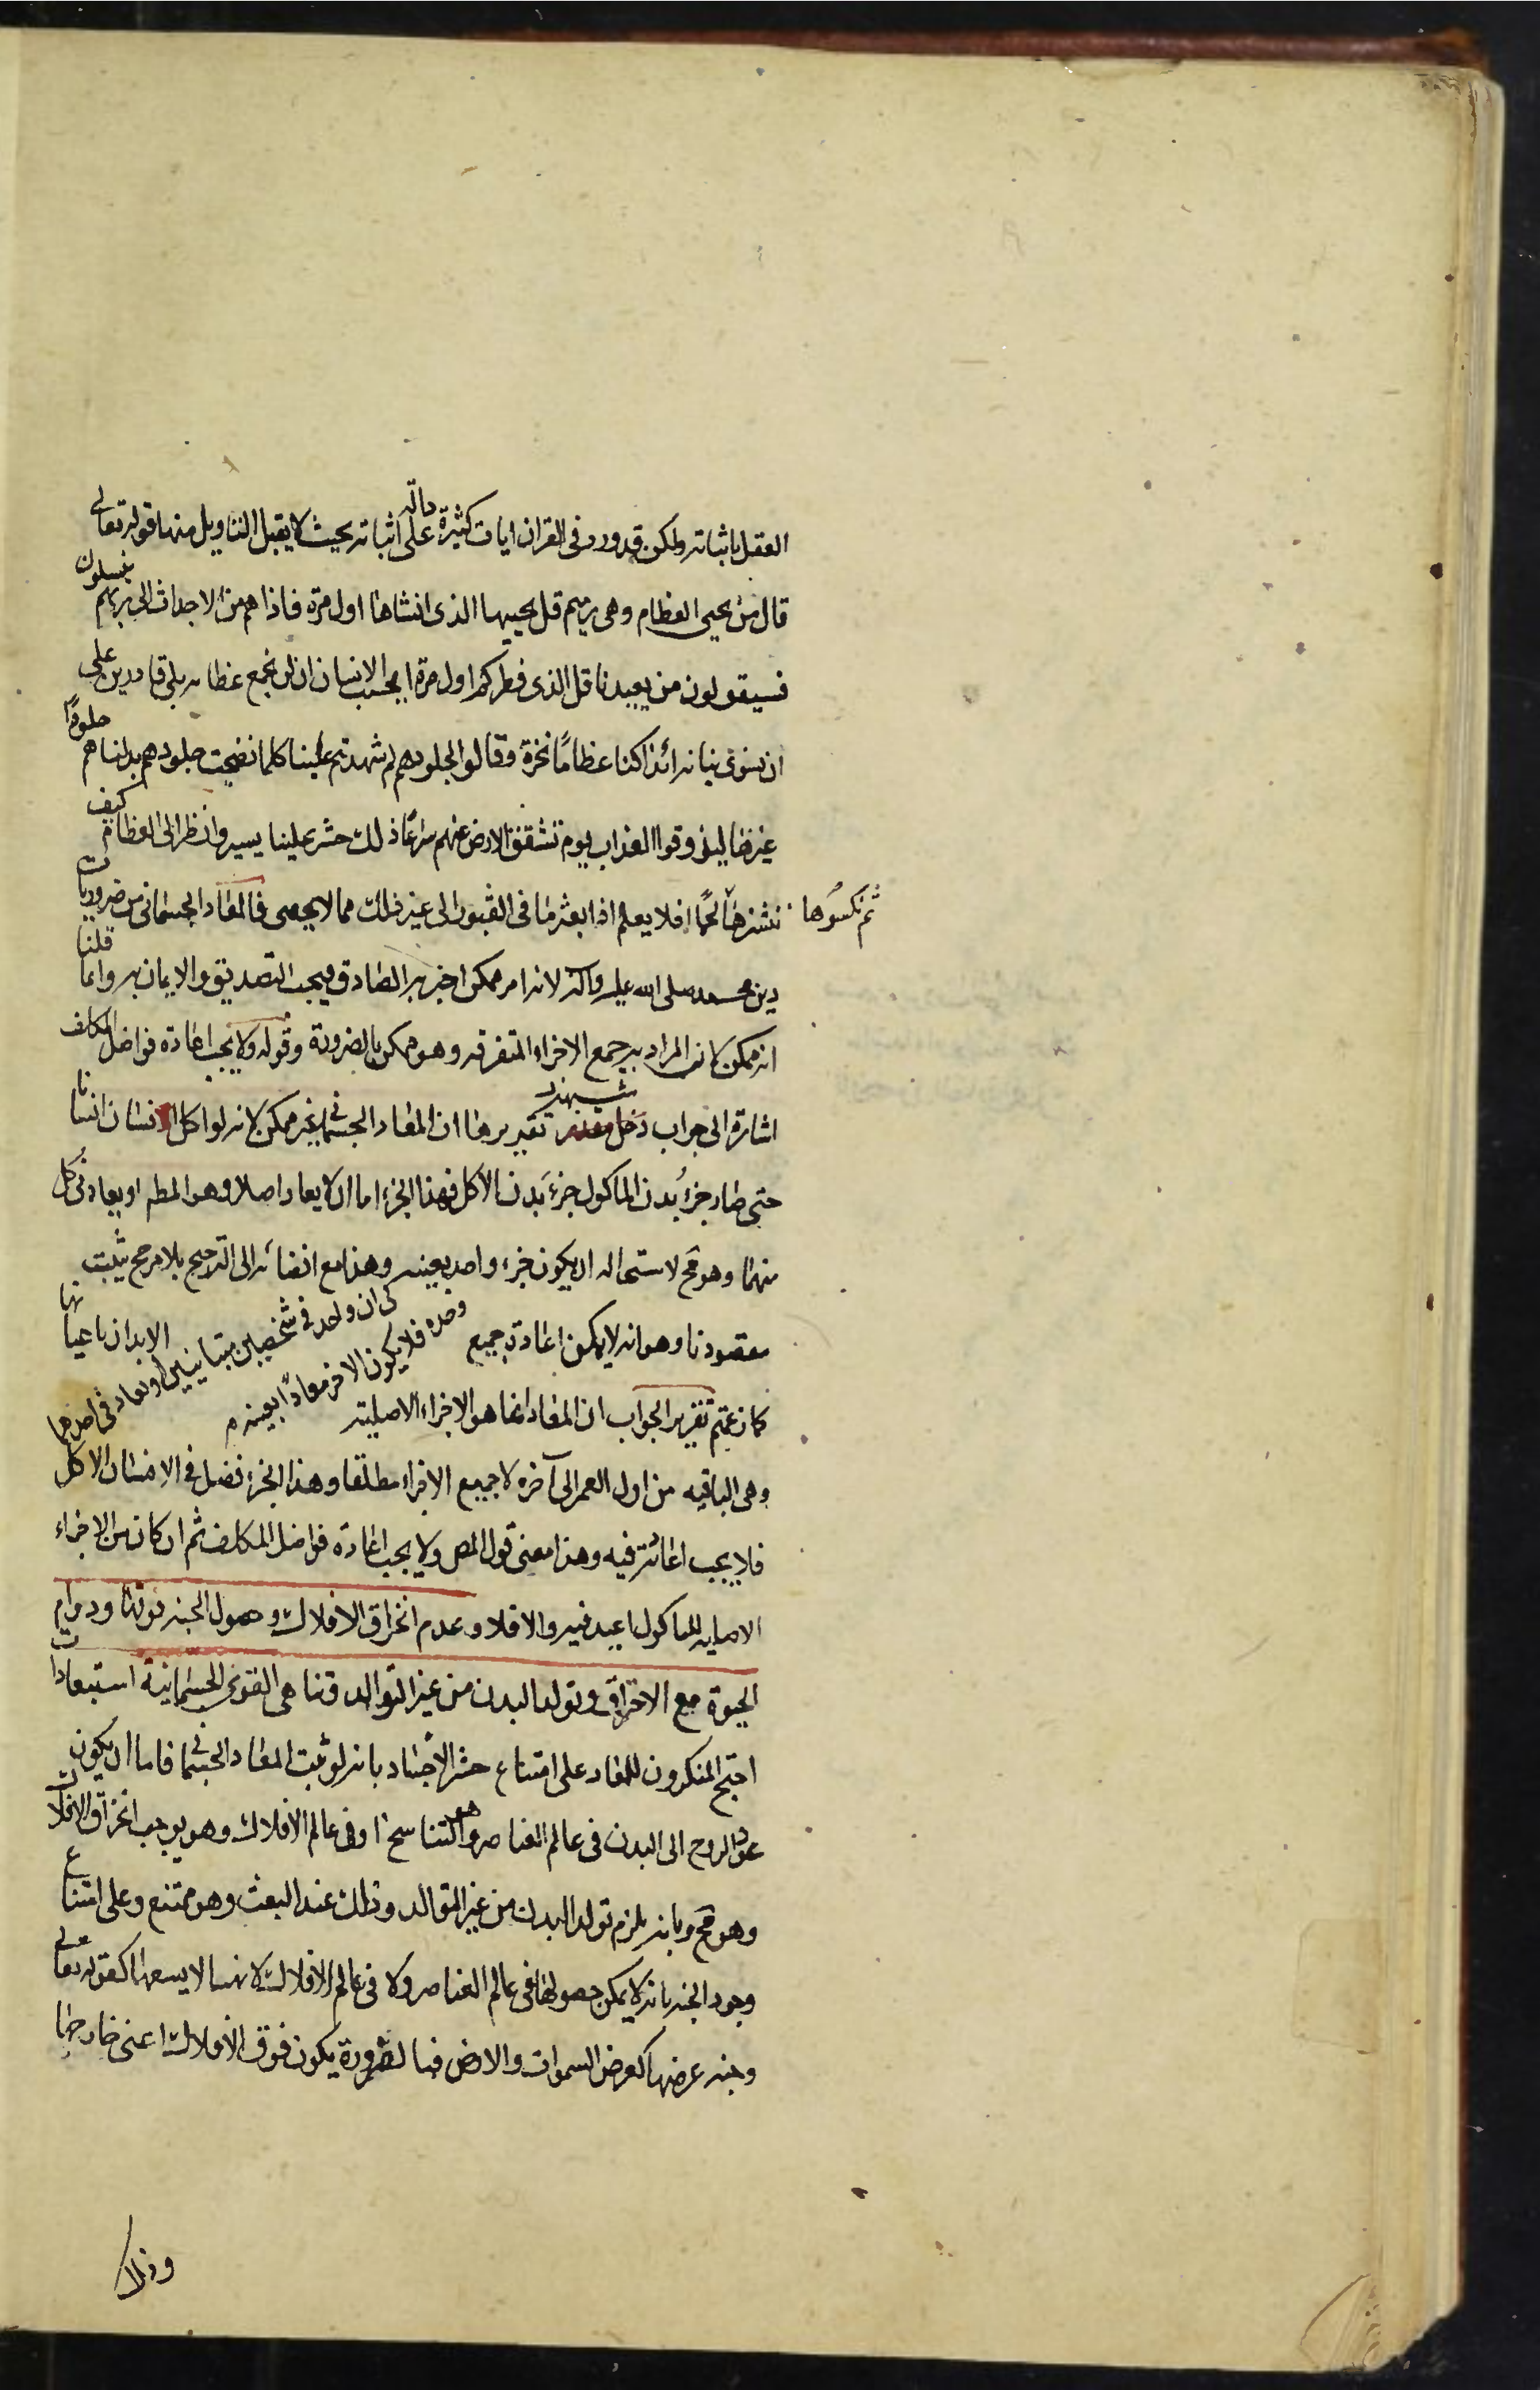 العقل باثباته ولكن قد ورد فى القران ايات كثيرة دالة على اثباته بحيث لا يقبل التاويل منها قوله تعالى
قال من يحيى العظام وهى رميم قل يحييها الذى انشاها اول مرة فاذا هم من الاجداث الى ربهم ينسلون
فسيقولون من يعيدنا قل الذى فطركم اول مرة ايحسب الانسان ان لن نجمع عظامه بلى قادرين على
ان نسوى بنانه ائذا كنا عظامًا نخرة وقالوا لجلودهم لم شهدتم علينا كلما نضجت جلودهم بدلناهم جلودًا
غيرها ليذوقوا العذاب يوم تشقق الارض عنهم سراعًا ذلك حشر علينا يسير وانظر الى العظام كيف
ننشزها ثم نكسوها لحمًا افلا يعلم اذا بعثر ما فى القبور الى غير ذلك مما لا يحصى فالمعاد الجسمانى من ضروريات
دين محمد صلى الله عليه وآله لانه امر ممكن اخبر به الصادق فيجب التصديق والايمان به وانما قلنا
انه ممكن لان المراد به جمع الاجزاء المتفرقه وهو ممكن بالضرورة وقوله ولا يجب اعادة فواضل المكلف
اشارة الى جواب دخل مقدر شبهة تقريرها ان المعاد الجسمانى غير ممكن لانه لو اكل انسان انسانا
حتى صار جزءُ بدن الماكول جزءَ بدن الآكل فهذا الجزء اما ان لا يعاد اصلا وهو المط او يعاد فى كل
منهما وهو مح لاستحالة ان يكون جزء واحد بعينه
كان واحد فى شخصين متباينين او يعاد فى احدهما
وحده فلا يكون الاخر معادًا بعينه م
وهذا مع افضائه الى الترجيح بلا مرجح يثبت
مقصودنا وهو انه لا يمكن اعادة جميع الابدان باعيانها
كما زعمتم تقرير الجواب ان المعاد انما هو الاجزاء الاصلية
وهى الباقيه من اول العمر الى آخره لا جميع الاجزاء مطلقا وهذا الجزء فضل فى الانسان الاكل
فلا يجب اعادته فيه وهذا معنى قول المص ولا يجب اعادة فواضل المكلف ثم ان كان من الاجزاء
الاصليه للماكول اعيد فيه والا فلا وعدم انخراق الافلاك وحصول الجنة فوقها ودوام
الحيوة مع الاحتراق وتولد البدن من غير التوالد وتناهى القوى الجسمانية استبعادات
احتج المنكرون للمعاد على امتناع حشر الأجساد بانه لو ثبت المعاد الجسمانى فاما ان يكون
عود الروح الى البدن فى عالم العناصر وهو التناسخ او فى عالم الافلاك وهو يوجب انخراق الافلاك
وهو مح وبانه يلزم تولد البدن من غير التوالد وذلك عند البعث وهو ممتنع وعلى امتناع
وجود الجنة بانه لا يمكن حصولها فى عالم العناصر ولا فى عالم الافلاك لانها لا يسعها كقوله تعالى
وجنة عرضها كعرض السموات والارض فبالضرورة يكون فوق الافلاك اعنى خارجها
وذلك